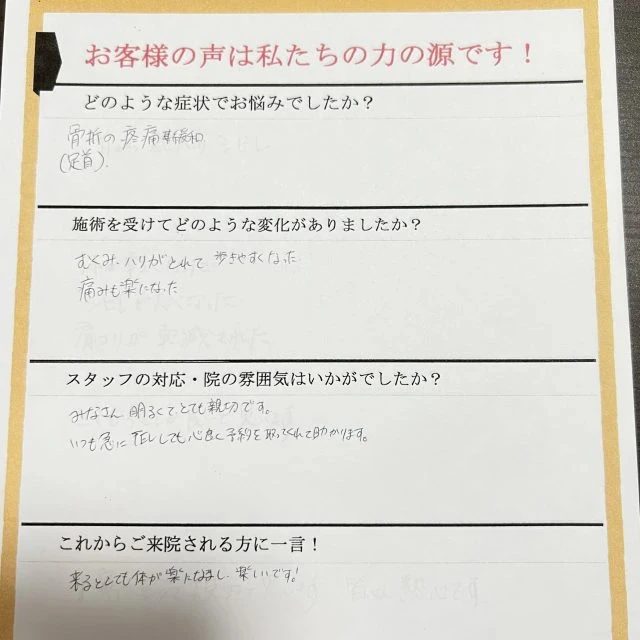 お客様の声は私たちの力の源です！
どのような症状でお悩みでしたか？
骨折の疼痛緩和
(足首).
施術を受けてどのような変化がありましたか？
むくみ、ハリがとれて 歩きやすくなった
痛みも楽になった
スタッフの対応・院の雰囲気はいかがでしたか？
みなさん 明るくてとても親切です。
いつも急に しても心良く予約を取ってくれて助かります。
これからご来院される方に一言！
来るととても体が楽になるし、楽しいです!